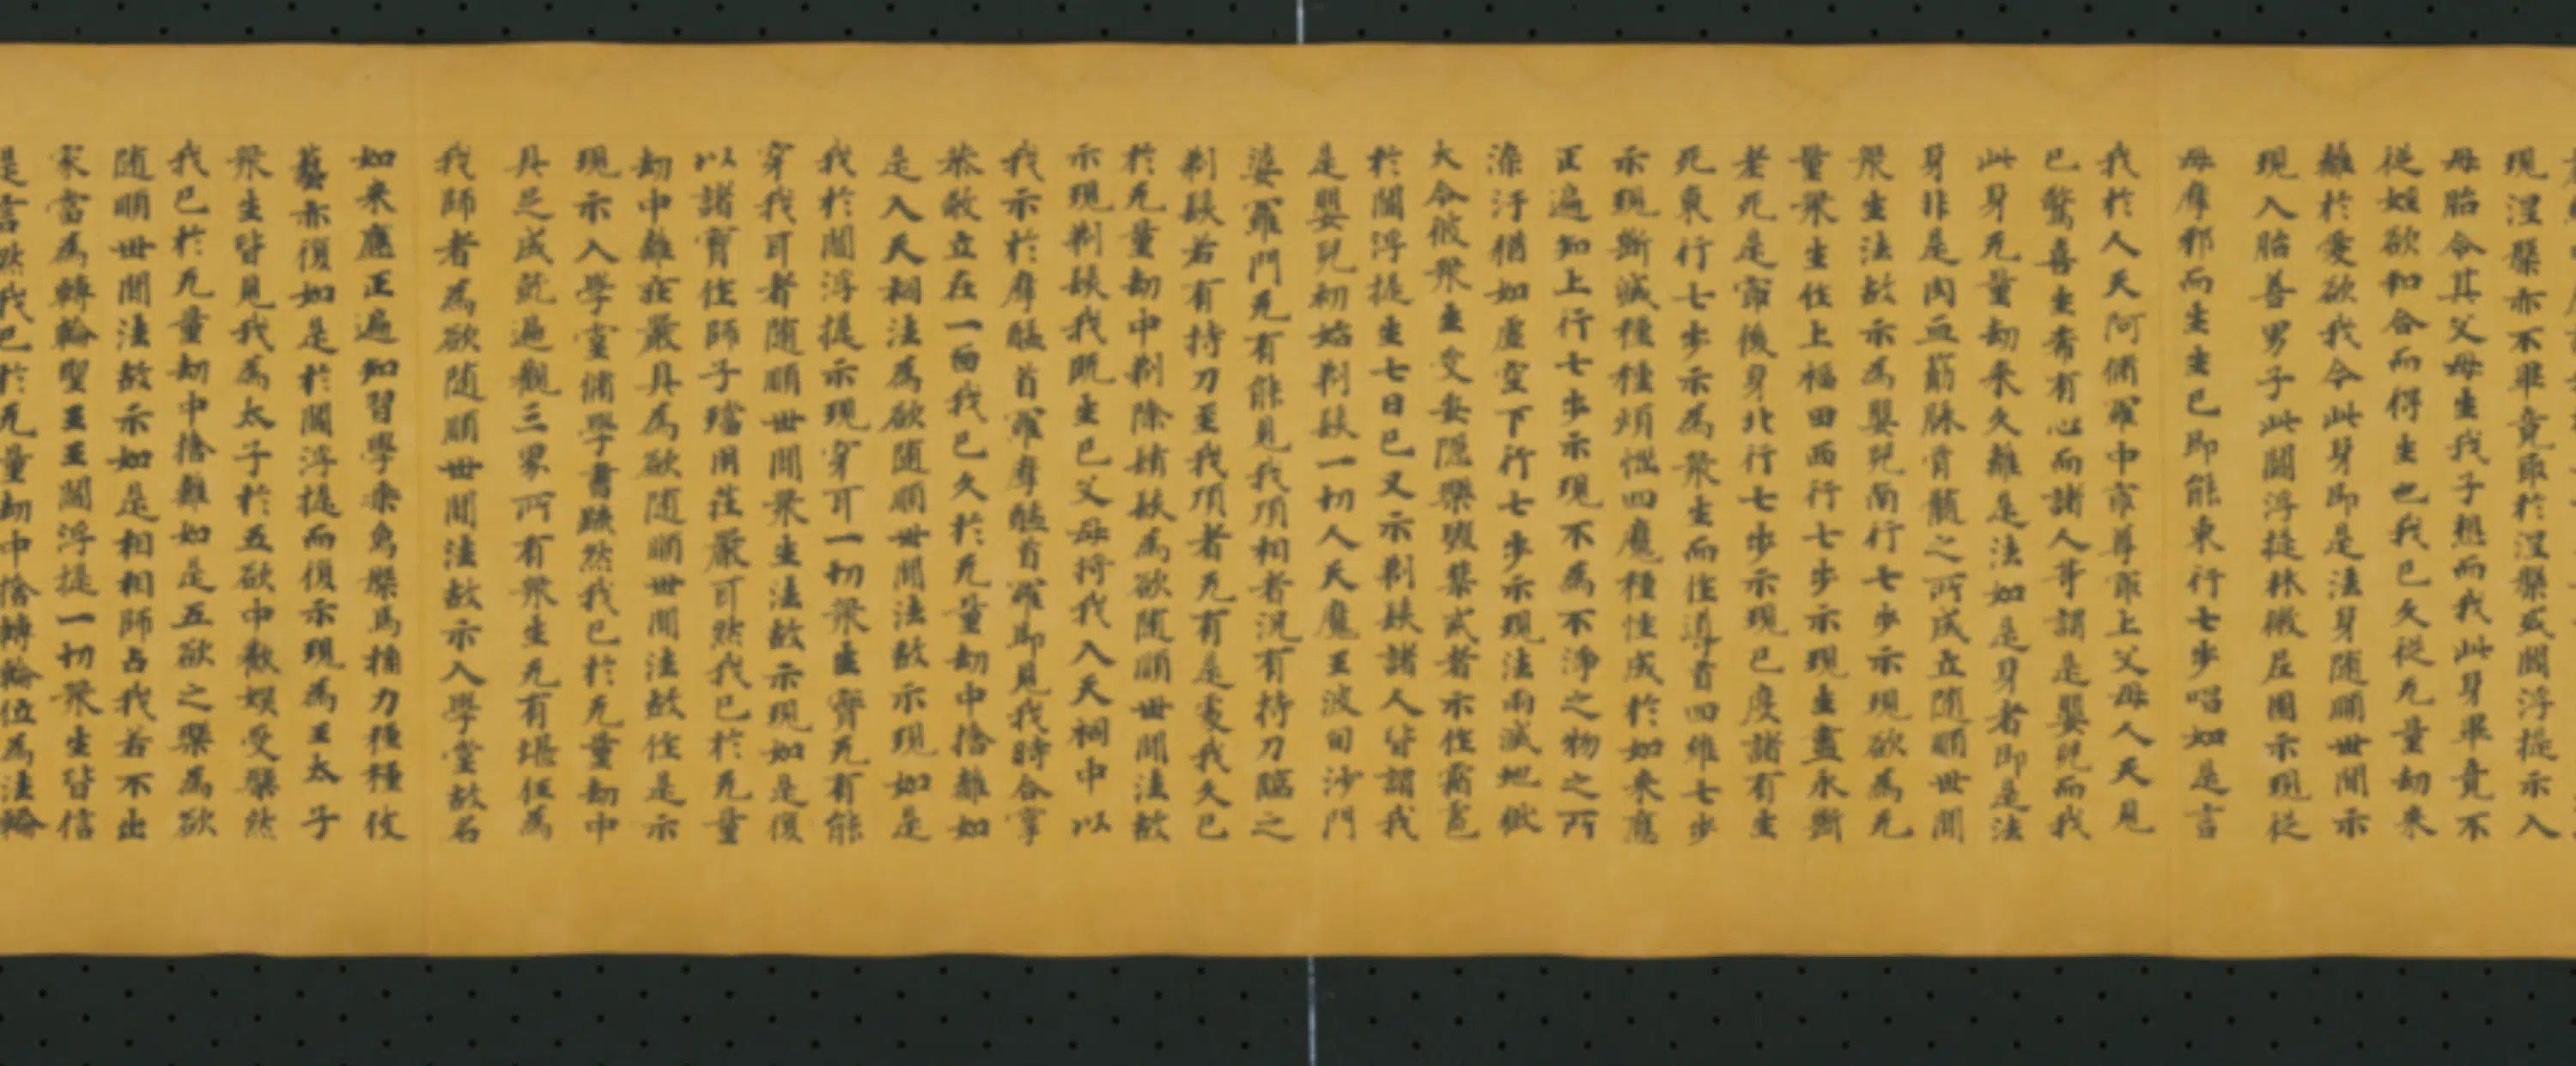 現涅槃亦不畢竟取於涅槃或閻浮提示入
母胎令其父母生我子想而我此身畢竟不
從婬欲和合而得生也我已久從无量劫來
離於愛欲我今此身即是法身随順世間示
現入胎善男子此閻浮提林微尼園示現從
母摩耶而生生已即能東行七步唱如是言
我於人天阿脩羅中冣尊冣上父母人天見
已驚喜生希有心而諸人等謂是嬰兒而我
此身无量劫来久離是法如是身者即是法
身非是肉血筋脉骨髓之所成立随順世間
衆生法故示為嬰兒南行七步示現欲為无
量衆生作上福田西行七步示現生盡永斷
老死是冣後身北行七步示現已度諸有生
死東行七步示為衆生而作導首四維七步
示現斷滅種種煩惱四魔種性成於如来應
正遍知上行七步示現不為不淨之物之所
染汙猶如虚空下行七步示現法雨滅地獄
火令彼衆生受安隱樂毀禁戒者示作霜雹
於閻浮提生七日已又示剃髮諸人皆謂我
是嬰兒初始剃髮一切人天魔王波旬沙門
婆羅門无有能見我頂相者況有持刀臨之
剃髮若有持刀至我頂者无有是處我久已
於无量劫中剃除鬚髮為欲随順世間法故
示現剃髮我既生已父母將我入天祠中以
我示於摩醯首羅摩醯首羅即見我時合掌
恭敬立在一面我已久於无量劫中捨離如
是入天祠法為欲随順世間法故示現如是
我於閻浮提示現穿耳一切衆生實无有能
穿我耳者随順世間衆生法故示現如是復
以諸寶作師子璫用莊嚴耳然我已於无量
劫中離莊嚴具為欲随順世間法故作是示
現示入學堂脩學書䟽然我已於无量劫中
具足成就遍觀三界所有衆生无有堪任為
我師者為欲随順世間法故示入學堂故名
如来應正遍知習學乘象槃馬捔力種種伎
藝亦復如是於閻浮提而復示現為王太子
衆生皆見我為太子於五欲中歡娛受樂然
我已於无量劫中捨離如是五欲之樂為欲
随順世間法故示如是相相師占我若不出
家當為轉輪聖王王閻浮提一切衆生皆信
是言然我已於无量劫中捨轉輪位為法輪